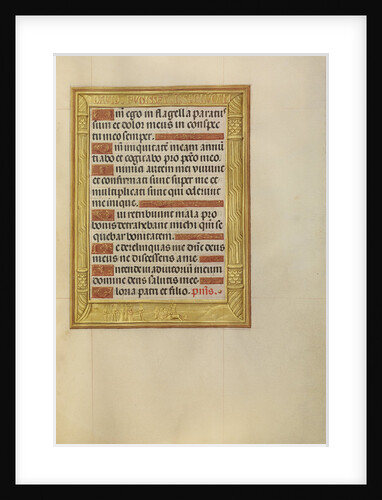 m ego in flagella paratus
sum et dolor meus in conspec
tu meo semper.
m iniquitatē meam annun
tiabo et cogitabo pro petō meo.
nimici autem mei vivunt
et confirmati sunt super me et
multiplicati sunt qui oderunt
me inique.
ui retribuunt mala pro
bonis detrahebant michi qm̄ se
quebar bonitatem.
e derelinquas me dn̄e deus
meus ne discesseris a me.
ntende in adiutoriū meum
domine deus salutis mee.
loria patri et filio.